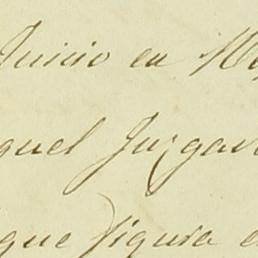 Juicio en
quel Juzga
que siguia